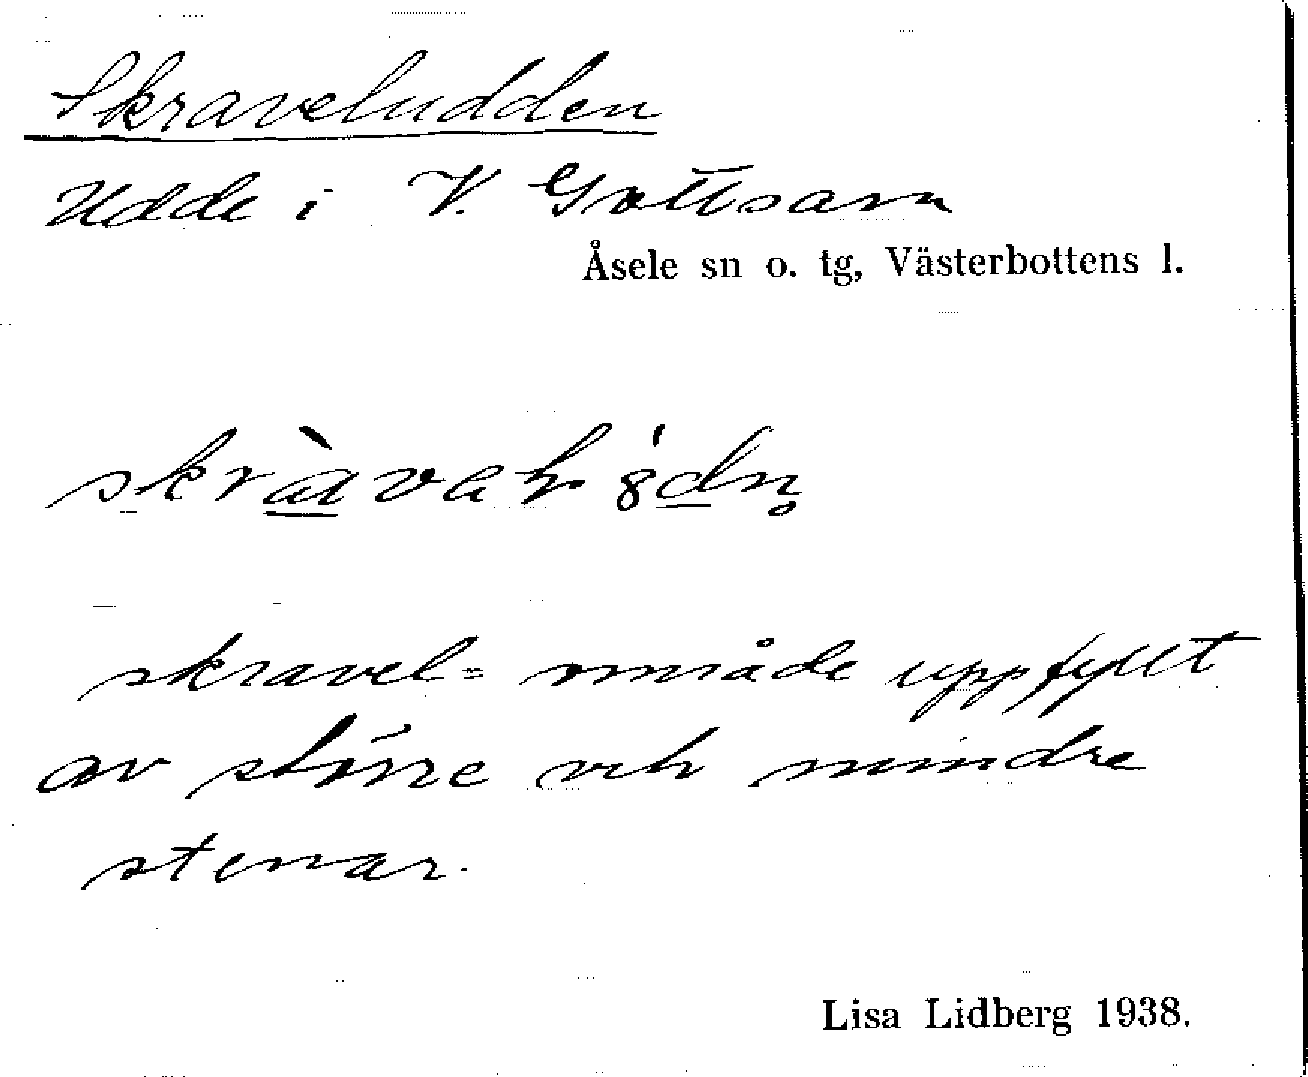 Skraveludden
Udde i V. Gottsarn
Åsele sn o. tg, Västerbottens l.
skravel= område uppfyllt
av större och mindre
stenar.
Lisa Lidberg 1938.